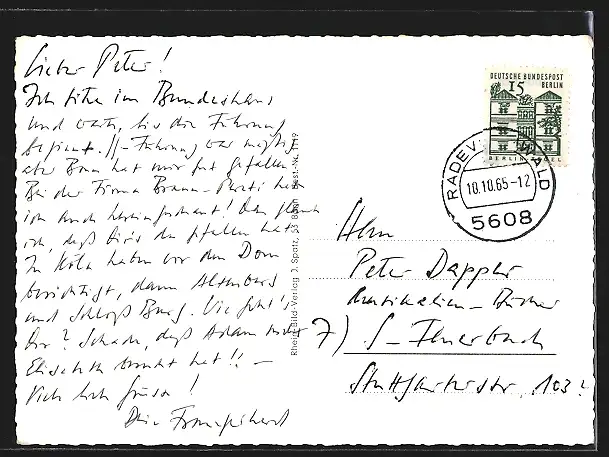 Lieber Peter!
Ich sitze im Bundeshaus
und warte, bis die Führung
beginnt. Führung war mäßig
aber Bonn hat mir gut gefallen.
Bei der Firma Braun
ich auch
ich, daß gefallen hat
In Köln haben wir den Dom
besichtigt, dann Altenberg
und Schloß Burg. Wie geht's
Dir? Schade, daß Adam nicht
Elisabeth hat!! –
Viele liebe Grüsse!
Dein
Rhein-Bild-Verlag J. Spatz, 53 Bonn Best.-Nr. 1119
DEUTSCHE BUNDESPOST
BERLIN
15
BERLIN-TEGEL
RADEV WALD
10.10.65-12
5608
Herrn
Peter Dappler
Antiquitäten - Bücher
7) S-Feuerbach
Stuttgarterstr. 103